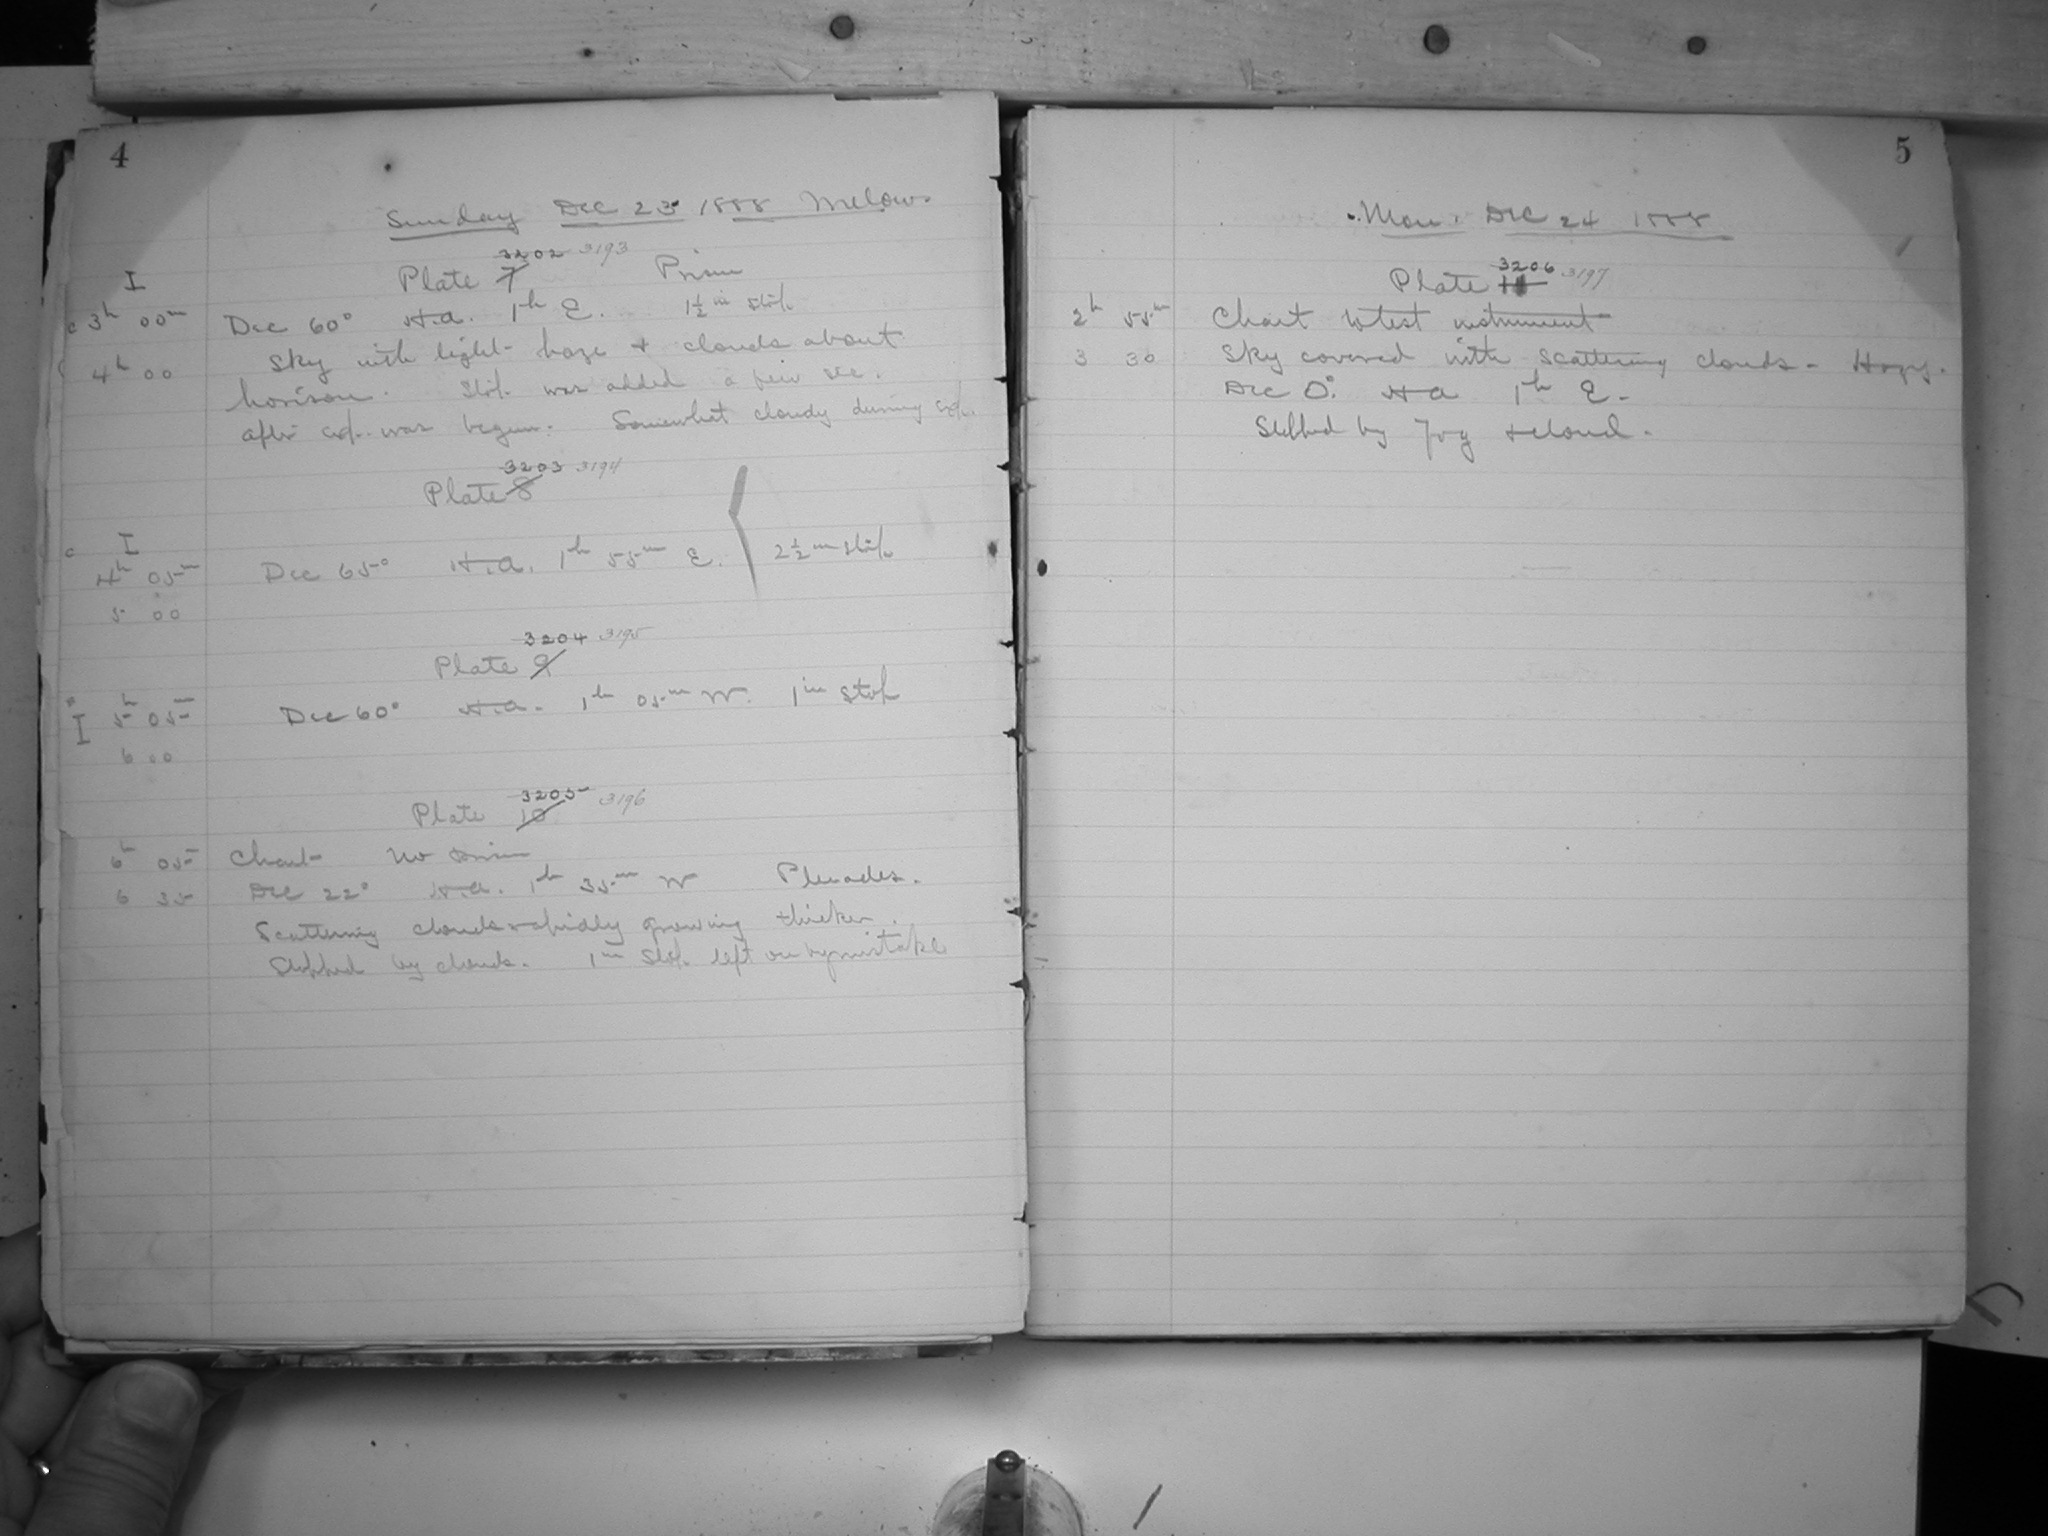 4
Sunday Dec 23 1888
3202 3193
I Plate 7 Prism
3h 00m Dec 60° H.a. 1h E. 1½ in stop
4h 00 Sky with light haze + clouds about
horison. Stop was added a few sec.
after exp. was begun. Somewhat cloudy during exp.
3203 3194
Plate 8
I
4h 05m Dec 65° H.a. 1h 55m E. 2½ in stop
5 00
3204 3195
Plate 9
I 5h 05m Dec 60° H.a. 1h 05m W. 1 in stop
6 00
3205 3196
Plate 10
6h 05m Chart No Prism
6 35 Dec 22° H.a. 1h 35m W Pleiades.
Scattering clouds rapidly growing thicker.
Stopped by clouds. 1 in stop left on by mistake
5
Mon. Dec 24 1888
3206 3197
Plate 11
2h 55m Chart to test instrument
3 30 Sky covered with scattering clouds - Hazy.
Dec 0° H a 1h E.
Stopped by fog + cloud.